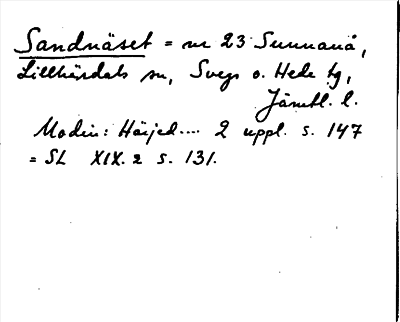 Sandnäset = nr 23 Sunnanå,
Lillhärdals sn, Svegs o. Hede tg,
Jämtl. l.
Modin: Härjed.... 2 uppl. s. 147
= SL XIX. 2 s. 131.